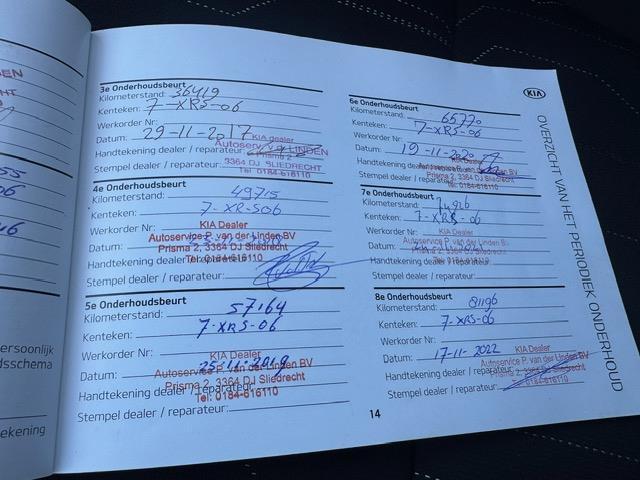 3e Onderhoudsbeurt
Kilometerstand: 36419
Kenteken: 7-XRS-06
Werkorder Nr:
Datum: 29-11-2017
KIA dealer
Handtekening dealer / reparateur:
Autoservice LINDEN
Prisma 2
Stempel dealer / reparateur:
3364 DJ SLIEDRECHT
Tel: 0184-616110
4e Onderhoudsbeurt
Kilometerstand: 49715
Kenteken: 7-XR-S06
Werkorder Nr:
KIA Dealer
Autoservice P. van der Linden BV
Datum:
Prisma 2, 3364 DJ Sliedrecht
Handtekening dealer
Tel: 0184-616110
Stempel dealer / reparateur:
5e Onderhoudsbeurt
Kilometerstand: 57164
Kenteken: 7-XRS-06
Werkorder Nr:
KIA Dealer
Datum: 25-11-2019
Autoservice P. van der Linden BV
Prisma 2, 3364 DJ Sliedrecht
Handtekening dealer / reparateur:
Tel: 0184-616110
Stempel dealer / reparateur:
KIA
6e Onderhoudsbeurt
Kilometerstand: 65770
Kenteken: 7-XRS-06
Werkorder Nr:
Datum: 19-11-2020
KIA Dealer
Handtekening dealer
Autoservice P. van der Linden BV
Prisma 2, 3364 DJ Sliedrecht
Stempel dealer / reparateur:
Tel: 0184-616110
7e Onderhoudsbeurt
Kilometerstand:
Kenteken: 7-XRS-06
Werkorder Nr:
KIA Dealer
Datum:
Autoservice P. van der Linden BV
Prisma 2, 3364 DJ Sliedrecht
Handtekening dealer
Tel: 0184-616110
Stempel dealer / reparateur:
8e Onderhoudsbeurt
Kilometerstand: 81196
Kenteken: 7-XRS-06
Werkorder Nr:
Datum: 17-11-2022
KIA Dealer
Autoservice P. van der Linden BV
Handtekening dealer / reparateur:
Prisma 2, 3364 DJ Sliedrecht
Stempel dealer / reparateur:
0184-616110
14
OVERZICHT VAN HET PERIODIEK ONDERHOUD
ersoonlijk
dsschema
ekening